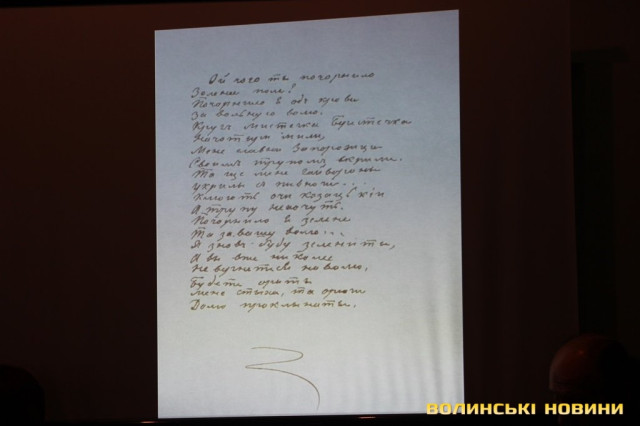 Ой чого ты почорнило
Зелене поле?
Почорнило я одъ крови
За вольную волю.
Кругъ мистечка Берестечка
На чотыри мили,
Мене славни Запорожци
Своимъ трупомъ вкрыли.
Та ще мене гайвороны
Укрылы съ пивночи...
Клюють очи козацькіи
А трупу нехочуть.
Почорнило я зелене
Та за вашу волю...
Я знов буду зеленіты,
А вы вже николы
Не вернетесь на волю,
Будете ораты
Мене стыха, та орючи
Долю проклынаты.
ВОЛИНСЬКІ НОВИНИ